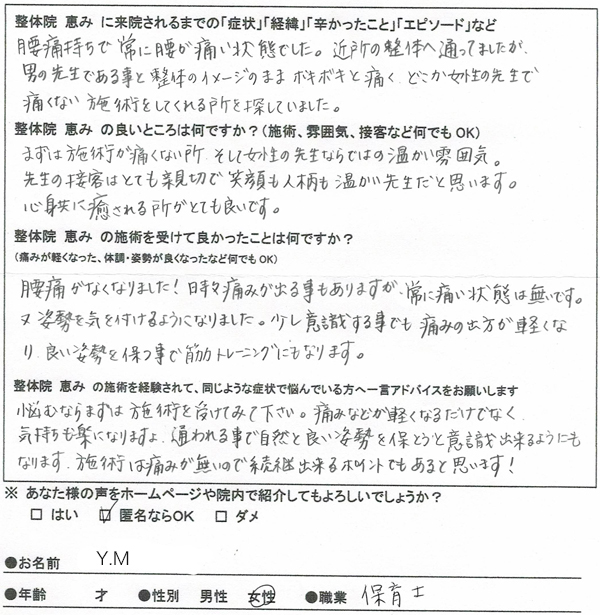 整体院 恵み に来院されるまでの「症状」「経緯」「辛かったこと」「エピソード」など
腰痛持ちで常に腰が痛い状態でした。近所の整体へ通ってましたが、
男の先生である事と整体のイメージのままボキボキと痛く、どこか女性の先生で
痛くない施術をしてくれる所を探していました。
整体院 恵み の良いところは何ですか？(施術、雰囲気、接客など何でもOK)
まずは施術が痛くない所、そして女性の先生ならではの温かい雰囲気。
先生の接客はとても親切で笑顔も人柄も温かい先生だと思います。
心身共に癒される所がとても良いです。
整体院 恵み の施術を受けて良かったことは何ですか？
(痛みが軽くなった、体調・姿勢が良くなったなど何でもOK)
腰痛がなくなりました！日々痛みが出る事もありますが、常に痛い状態は無いです。
又姿勢を気を付けるようになりました。少し意識する事でも痛みの出方が軽くな
り、良い姿勢を保つ事で筋力トレーニングにもなります。
整体院 恵み の施術を経験されて、同じような症状で悩んでいる方へ一言アドバイスをお願いします
悩むならまずは施術を受けてみて下さい。痛みなどが軽くなるだけでなく、
気持ちも楽になりますよ。通われる事で自然と良い姿勢を保とうと意識出来るようにも
なります。施術は痛みが無いので続継出来るポイントでもあると思います！
※ あなた様の声をホームページや院内で紹介してもよろしいでしょうか？
□ はい ☑ 匿名ならOK □ ダメ
●お名前 Y.M
●年齢 才 ●性別 男性 女性 ●職業 保育士